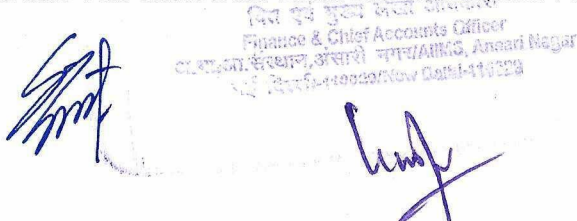 वित्त एवं मुख्य लेखा अधिकारी
Finance & Chief Accounts Officer
अ.भा.आ. संस्थान, अंसारी नगर/AIIMS, Ansari Nagar
नई दिल्ली-110029/New Delhi-110029